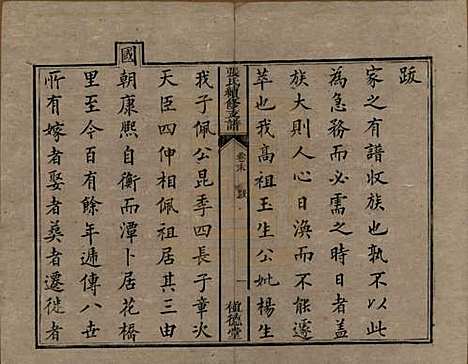 跋
家之有譜收族也孰不以此
為急務而必需之時日者蓋
族大則人心日渙而不能遽
萃也我高祖玉生公妣楊生
張氏續修支譜
卷末
跋
一
植德堂
我子佩公昆季四長子章次
天臣四仲相佩祖居其三由
國朝康熙自衡而潭卜居花橋
里至今百有餘年遞傳八世
所有嫁者娶者葬者遷徙者